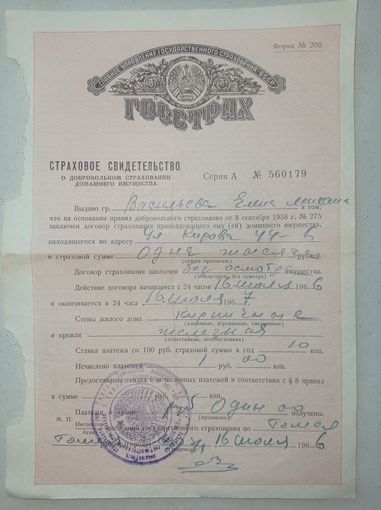 Форма № 200.
ГЛАВНОЕ УПРАВЛЕНИЕ ГОСУДАРСТВЕННОГО СТРАХОВАНИЯ БССР
ГОССТРАХ
СТРАХОВОЕ СВИДЕТЕЛЬСТВО
О ДОБРОВОЛЬНОМ СТРАХОВАНИИ
ДОМАШНЕГО ИМУЩЕСТВА
Серия А № 560179
Выдано гр. Васильева Елена в том,
что на основании правил добровольного страхования от 8 сентября 1958 г. № 275
заключен договор страхования принадлежащего ему (ей) домашнего имущества,
находящегося по адресу ул Кирова 44-6
в страховой сумме Одна тысяча рублей.
(сумма прописью)
Договор страхования заключен без осмотра имущества.
(с осмотром, без осмотра)
Действие договора начинается с 24 часов 16 июля 1966
и оканчивается в 24 часа 16 июля 1967
Стены жилого дома кирпичные
(каменные, деревянные, смешанные)
и кровля железная
(огнестойкая, неогнестойкая)
Ставка платежа со 100 руб. страховой суммы в год 10 коп.
Исчислено платежей 1 руб. 00 коп.
Предоставлена скидка с исчисленных платежей в соответствии с § 8 правил
в сумме руб. коп.
Платежи руб Один 00 получены.
(прописью)
М. П.
государственного страхования по
16 июля 1966